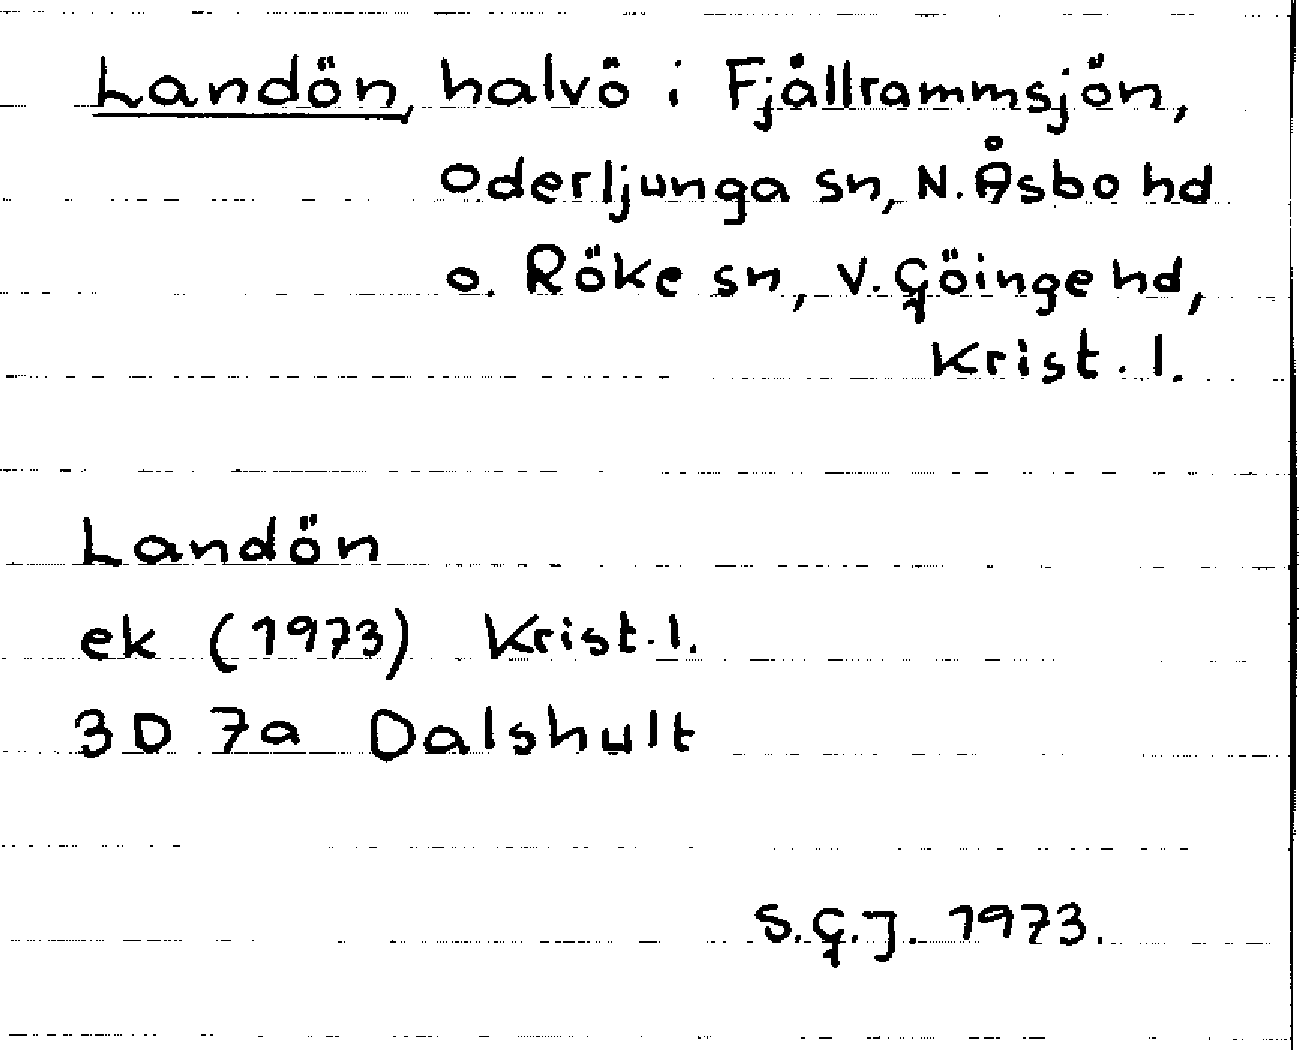 Landön, halvö i Fjällrammsjön,
Oderljunga sn, N. Åsbo hd
o. Röke sn, V. Göinge hd,
Krist. l.
Landön
ek (1973) Krist. l.
3D 7a Dalshult
S.G.J. 1973.